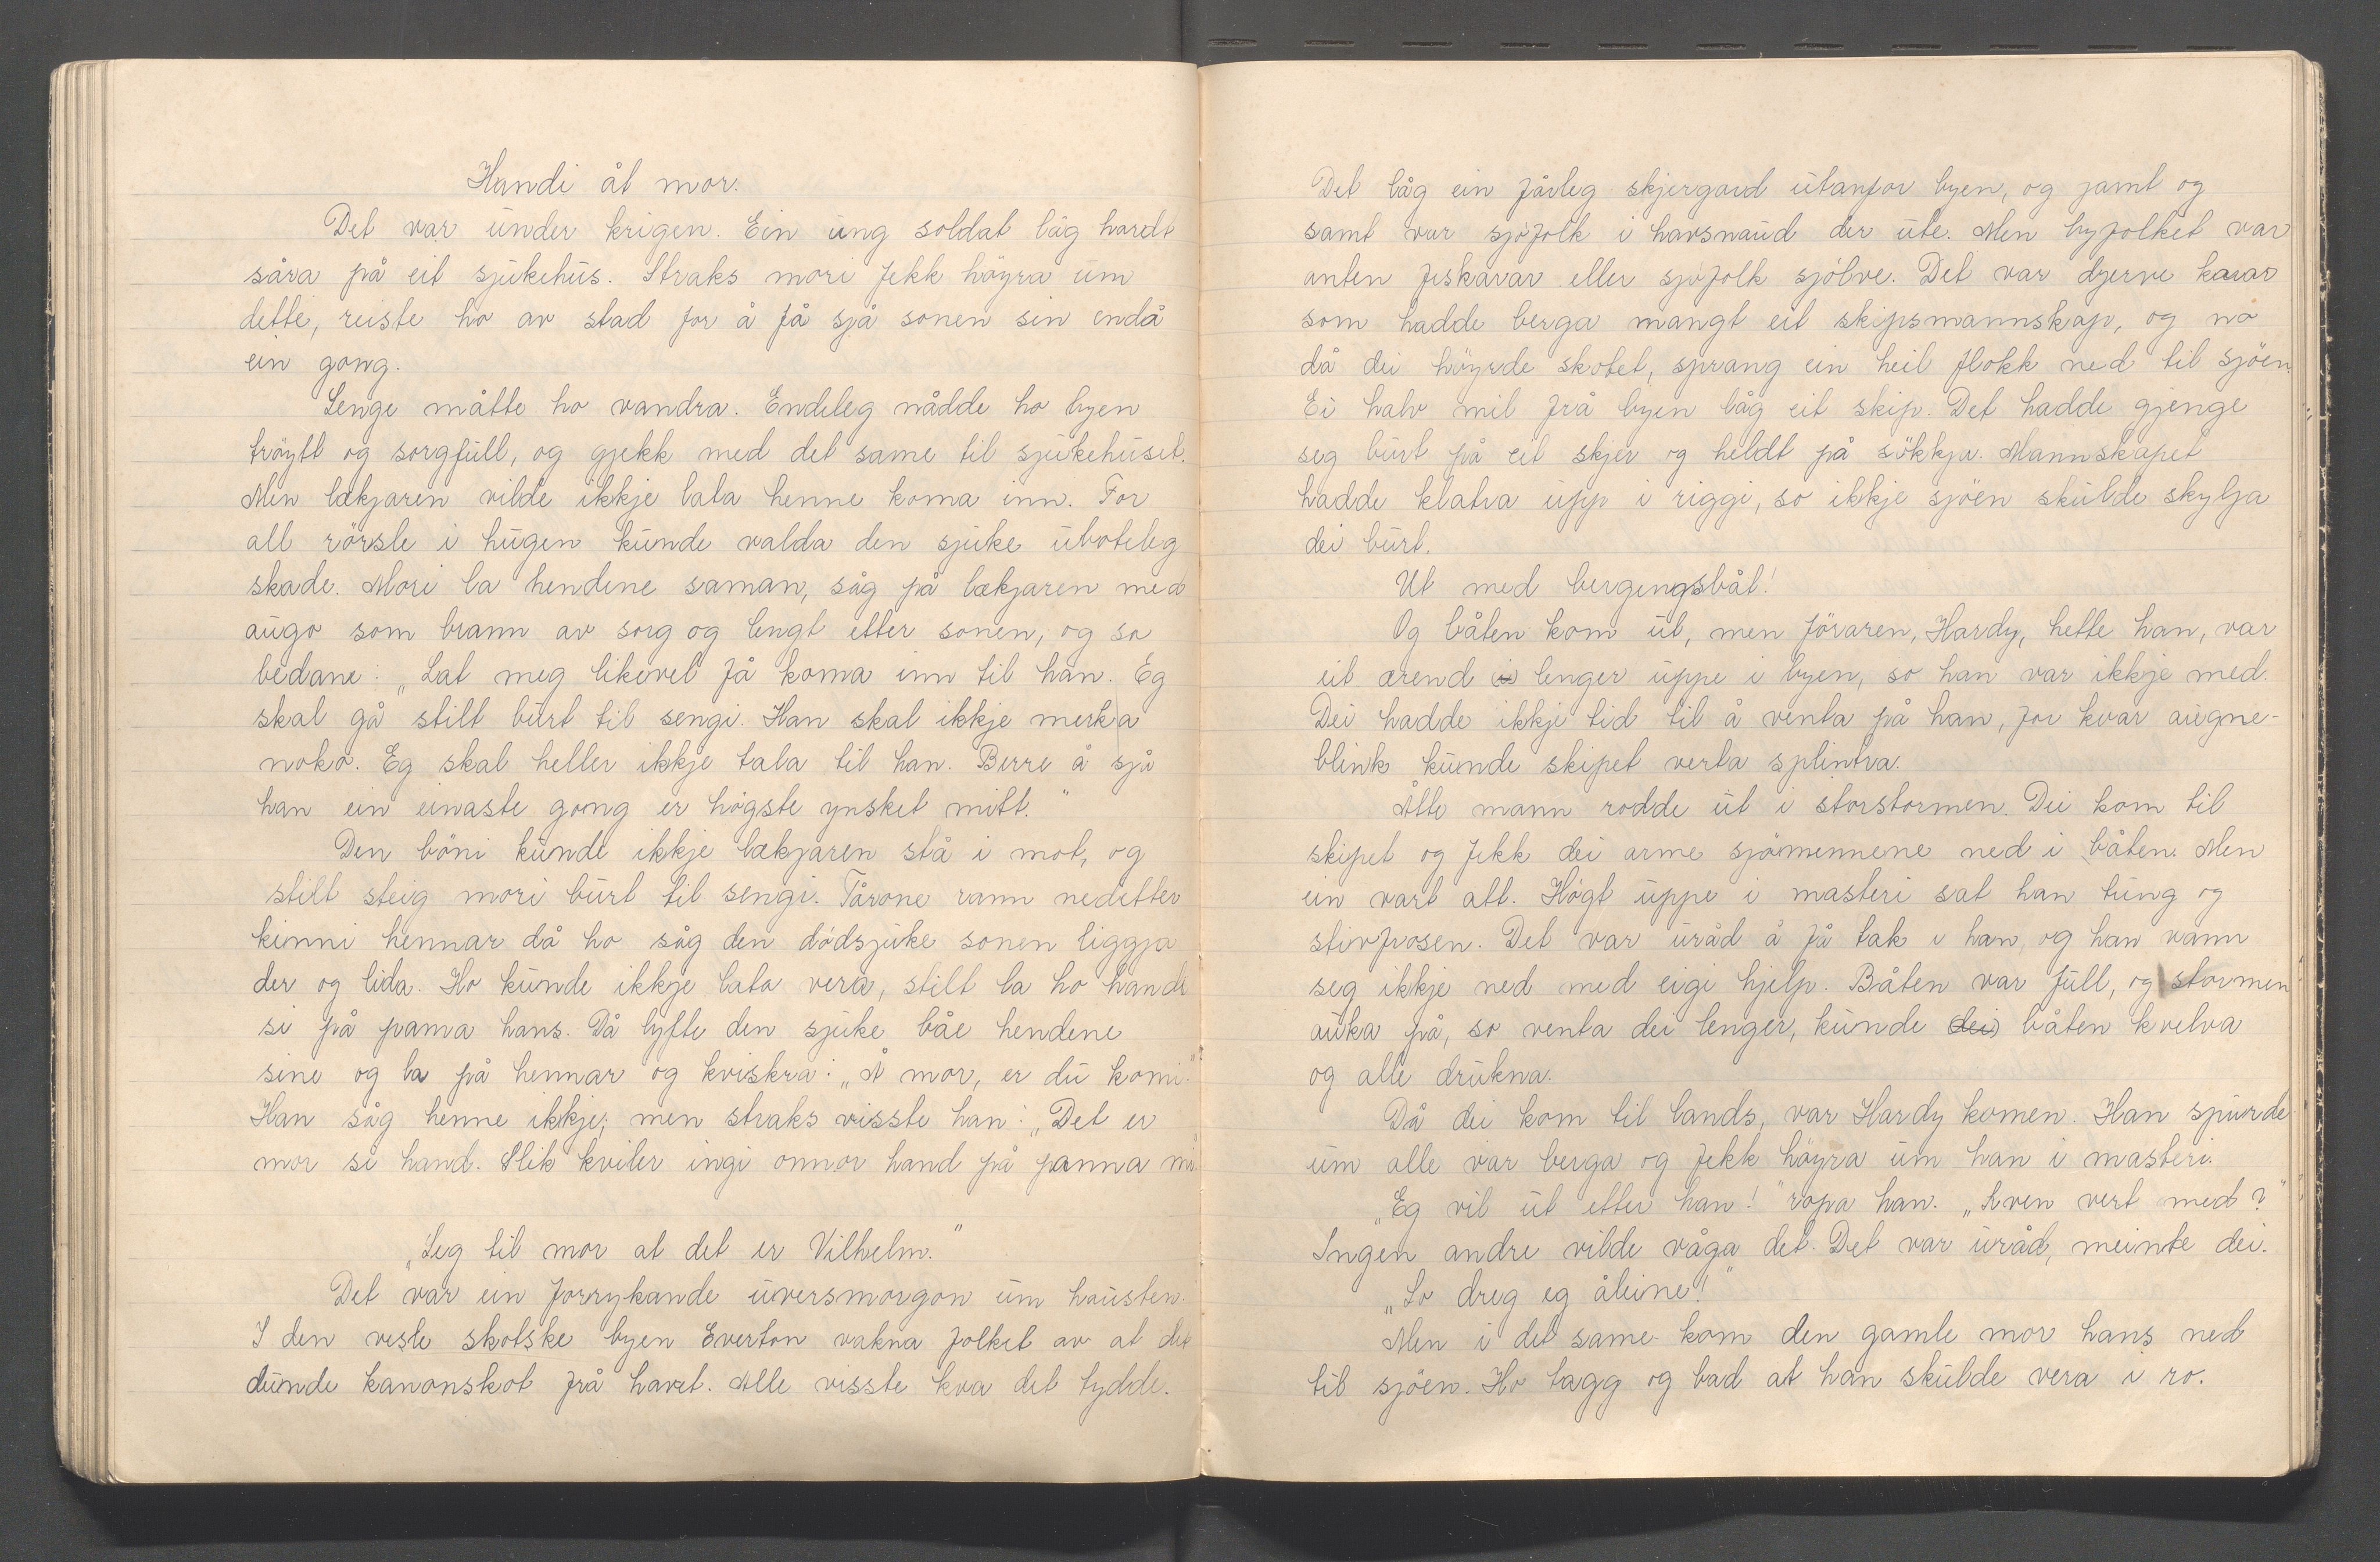 Handi åt mor.
Det var under krigen. Ein ung soldat låg hardt
såra på eit sjukehus. Straks mori fekk höyra um
dette, reiste ho av stad for å få sjå sonen sin endå
ein gong.
Lenge måtte ho vandra. Endeleg nådde ho byen
tröytt og sorgfull, og gjekk med det same til sjukehuset.
Men lækjaren vilde ikkje lata henne koma inn. For
all rörsle i hugen kunde valda den sjuke uboteleg
skade. Mori la hendene saman, såg på lækjaren med
augo som brann av sorg og lengt etter sonen, og so
bedane: „Lat meg likevel få koma inn til han. Eg
skal gå stilt burt til sengi. Han skal ikkje merka
noko. Eg skal heller ikkje tala til han. Berre å sjå
han ein einaste gong er högste ynsket mitt."
Den böni kunde ikkje lækjaren stå i mot, og
stilt steig mori burt til sengi. Tårone rann nedetter
kinni hennar då ho såg den dödsjuke sonen liggja
der og lida. Ho kunde ikkje lata vera, stilt la ho handi
si på panna hans. Då lyfte den sjuke båe hendene
sine og la på hennar og kviskra: „Å mor, er du komi."
Han såg henne ikkje, men straks visste han: „Det er
mor si hand. Slik kviler ingi onnor hand på panna mi."
„Seg til mor at det er Vilhelm."
Det var ein forrykande uversmorgon um hausten.
I den vesle skotske byen Everton vakna folket av at det
dunde kanonskot frå havet. Alle visste kva det tydde.
Det låg ein fårleg skjergard utanfor byen, og jamt og
samt var sjöfolk i havsnaud der ute. Men byfolket var
anten fiskarar eller sjöfolk sjölve. Det var djerve karar
som hadde berga mangt eit skipsmannskap, og no
då dei höyrde skotet, sprang ein heil flokk ned til sjöen.
Ei halv mil frå byen låg eit skip. Det hadde gjenge
seg burt på eit skjer og heldt på sökkja. Mannskapet
hadde klatra upp i riggi, so ikkje sjöen skulde skylja
dei burt.
Ut med bergingsbåt!
Og båten kom ut, men föraren, Hardy, hette han, var
eit ærend i lenger uppe i byen, so han var ikkje med.
Dei hadde ikkje tid til å venta på han, for kvar augne-
blink kunde skipet verta splintra.
Åtte mann rodde ut i storstormen. Dei kom til
skipet og fekk dei arme sjömennene ned i båten. Men
ein vart att. Högt uppe i masteri sat han tung og
stivfrosen. Det var uråd å få tak i han, og han vann
seg ikkje ned med eigi hjelp. Båten var full, og stormen
auka på, so venta dei lenger, kunde dei båten kvelva
og alle drukna.
Då dei kom til lands, var Hardy komen. Han spurde
um alle var berga og fekk höyra um han i masteri.
„Eg vil ut etter han!" ropa han. „Kven vert med?"
Ingen andre vilde våga det. Det var uråd, meinte dei.
„So dreg eg åleine!"
Men i det same kom den gamle mor hans ned
til sjöen. Ho tagg og bad at han skulde vera i ro.